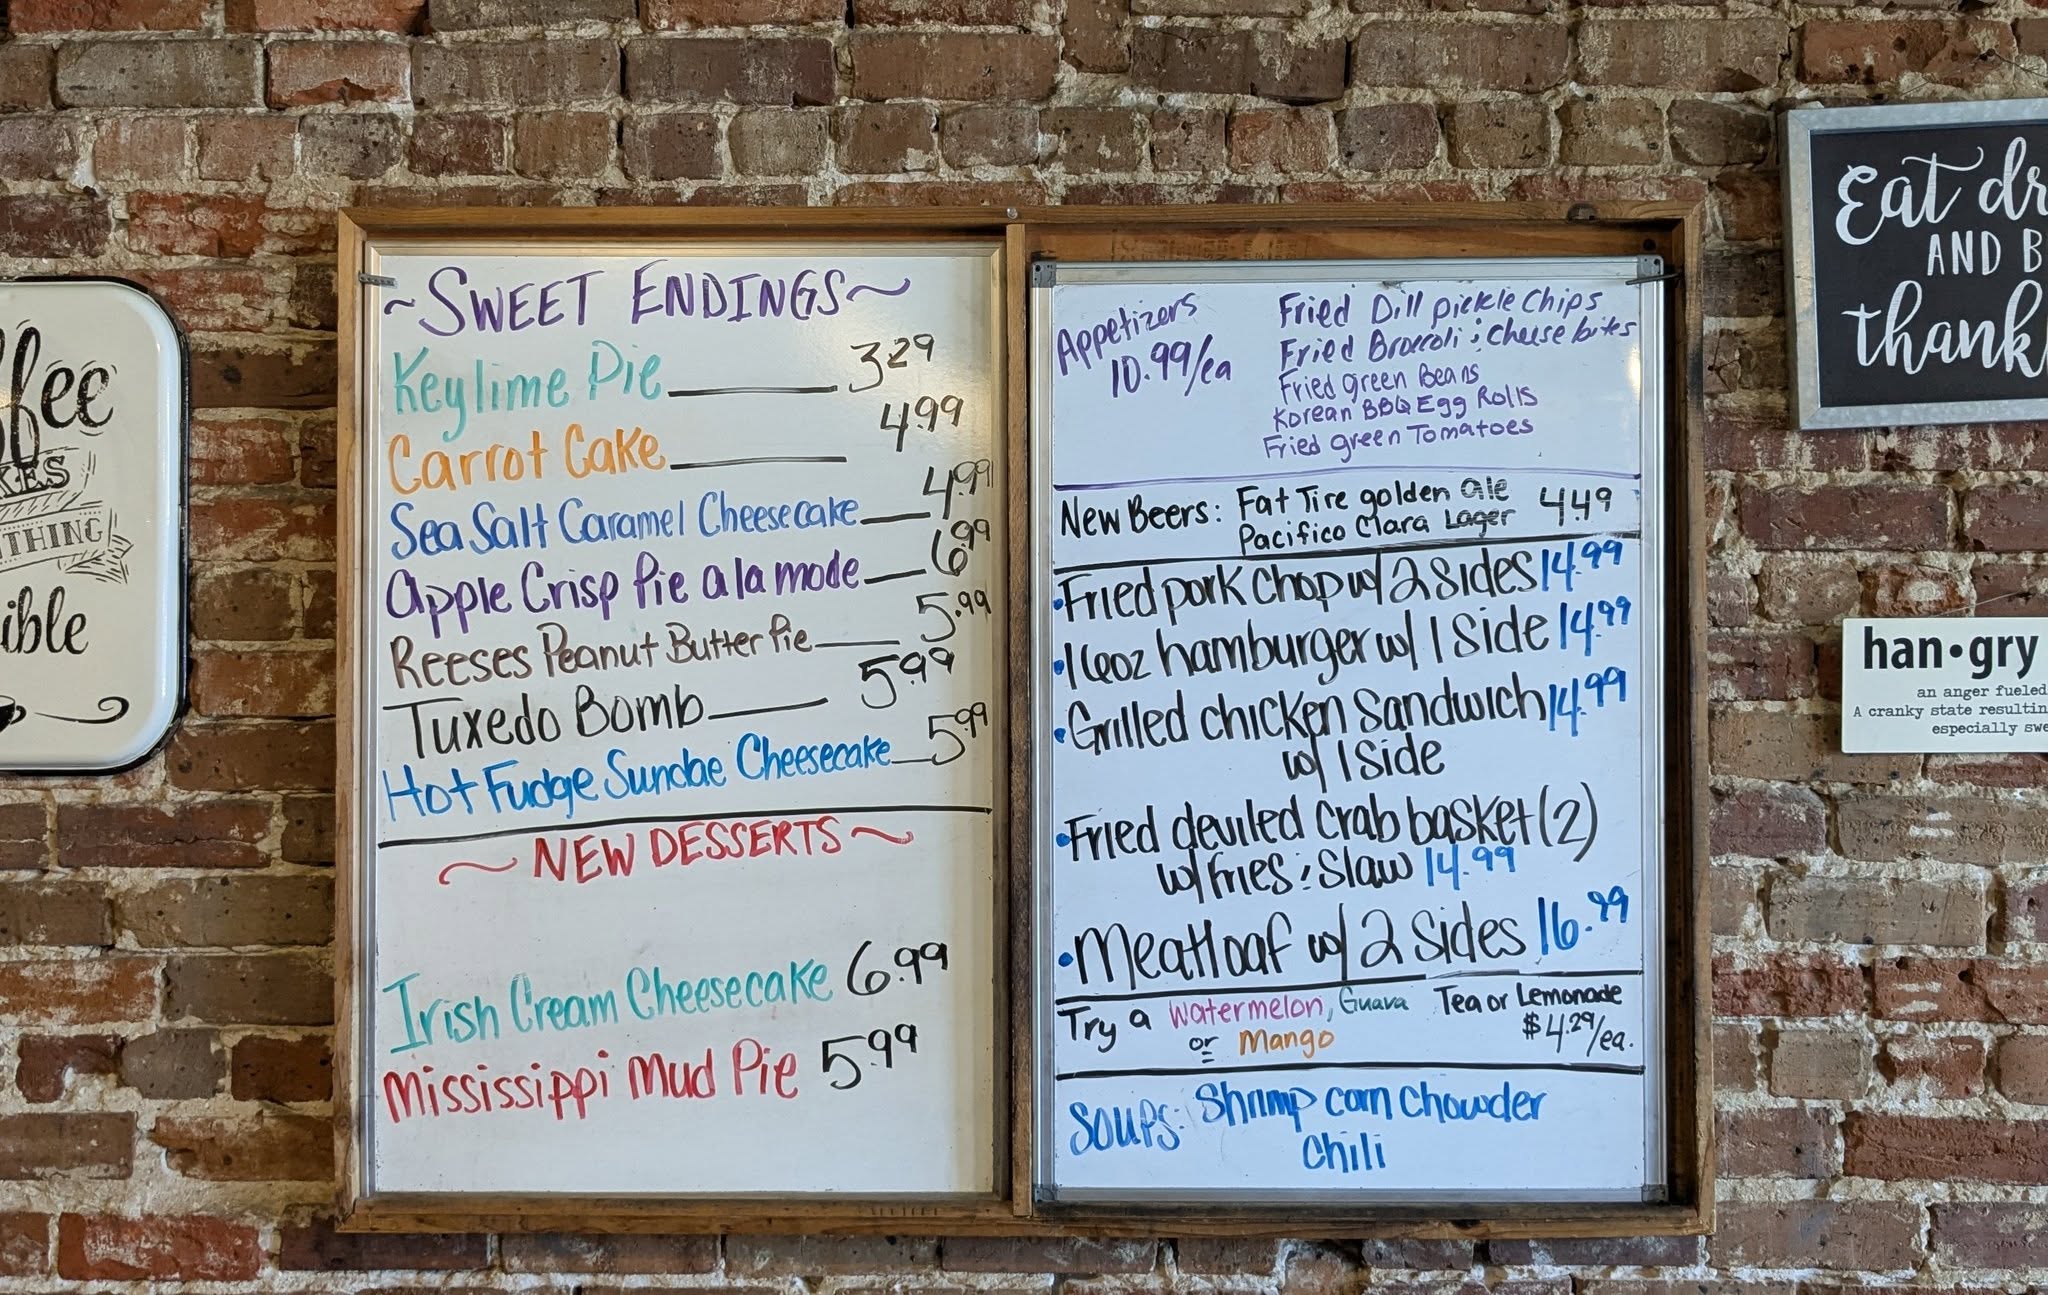 ~SWEET ENDINGS~
Keylime Pie 3.29
Carrot Cake 4.99
Sea Salt Caramel Cheesecake 4.99
Apple Crisp Pie a la mode 6.99
Reeses Peanut Butter Pie 5.99
Tuxedo Bomb 5.99
Hot Fudge Sundae Cheesecake 5.99
~ NEW DESSERTS ~
Irish Cream Cheesecake 6.99
Mississippi Mud Pie 5.99
Appetizers
10.99/ea
Fried Dill pickle Chips
Fried Broccoli & cheese bites
Fried green Beans
Korean BBQ Egg Rolls
Fried green Tomatoes
New Beers: Fat Tire golden ale 4.49
Pacifico Clara Lager
•Fried pork chop w/ 2 sides 14.99
•16oz hamburger w/ 1 side 14.99
•Grilled chicken sandwich 14.99
w/ 1 side
•Fried deviled crab basket (2)
w/ fries & slaw 14.99
•Meatloaf w/ 2 sides 16.99
Try a Watermelon, Guava Tea or Lemonade
or Mango $4.29/ea.
SOUPS: Shrimp corn chowder
chili
ffee
KES
THING
ible
Eat dr
AND B
thank
han•gry
an anger fueled
A cranky state resultin
especially swe